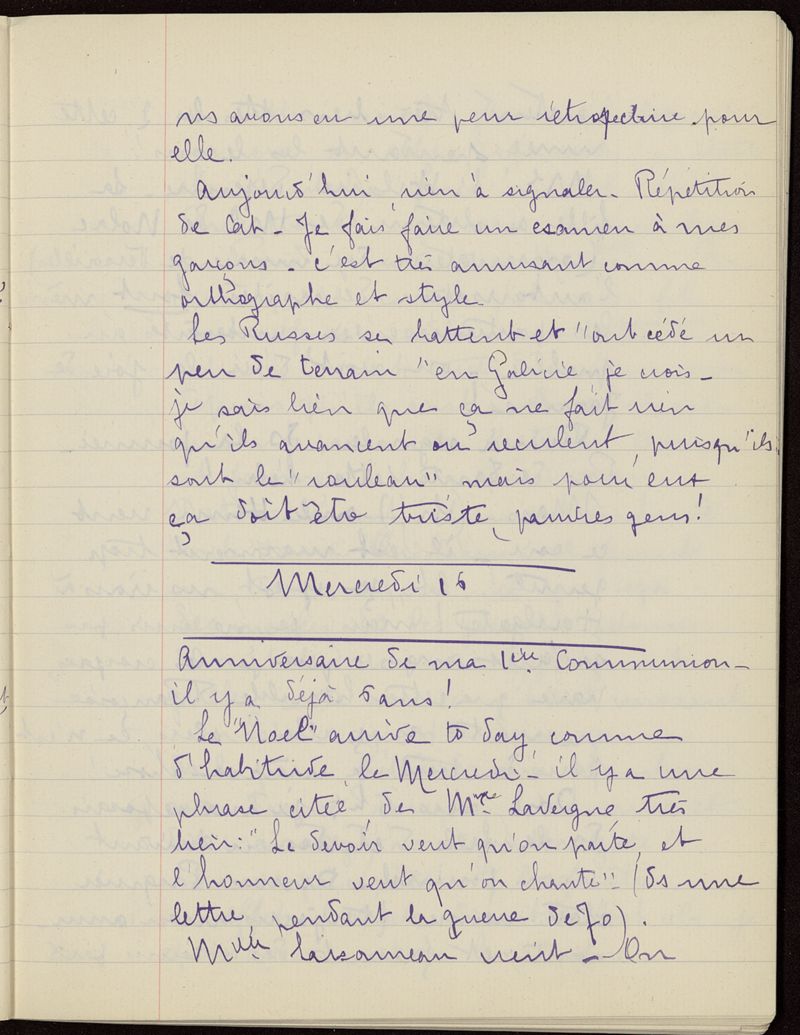 ns avons eu une peur rétrospective pour
elle.
Aujourd'hui, rien à signaler - Répétition
de Cat - Je fais faire un examen à mes
garçons - c'est très amusant comme
orthographe et style.
Les Russes se battent et "ont cédé un
peu de terrain" en Galicie je crois -
je sais bien que ça ne fait rien
qu'ils avancent ou reculent, puisqu'ils
sont le "rouleau" mais pour eux
ça doit être triste, pauvres gens!
Mercredi 16
Anniversaire de ma 1ère Communion -
il y a déjà 5 ans!
Le "Noël" arrive to day, comme
d'habitude, le Mercredi - il y a une
phrase citée, de Mme Lavergne, très
bien: "Le devoir veut qu'on parte, et
l'honneur veut qu'on chante" - (ds une
lettre, pendant la guerre de 70).
Mlle vient - On